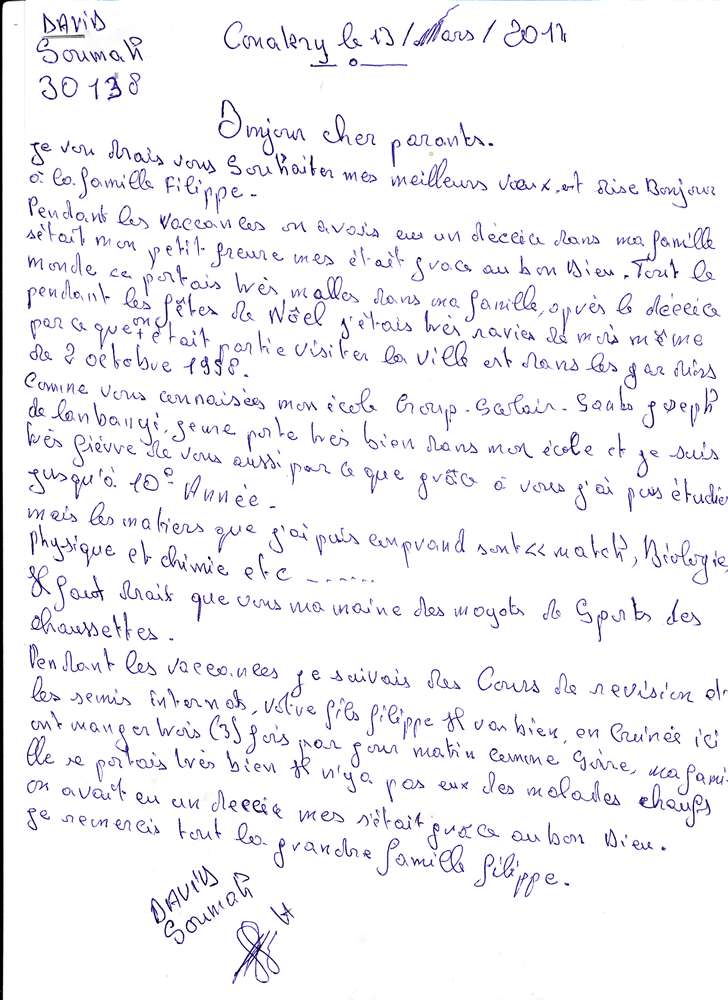 DAVID
Soumah
30138
Conakry le 13/Mars/2011
Bonjour cher parants.
Je vou drais vous Souhaiter mes meilleurs vœux, est dise Bonjour
à la famille Filippe.
Pendant les vaccances on avais eu un déccéa dans ma famille
s'était mon petit freure mes était grace au bon Dieu. Tout le
monde ce portais très malles dans ma famille, après le déccéa
pendant les fêtes de Nôel j'étais très ravies de mois même
par ce que on était partie visiter la ville est dans les gardins
de 2 octobre 1958.
Comme vous connaisées mon école Group-Scolair-Saint joseph
de lanbangi, je me porte très bien dans mon école et je suis
très fiévre de vous aussi par ce que grâce à vous j'ai pus étudier
jusqu'à 10e Année.
mais les matiers que j'ai puis comprand sont << match, Biologie,
physique et chimie etc ......
Il faut drait que vous ma maine des moyots de Sports des
chaussettes.
Pendant les vaccances je suivais des Cours de revision et
les semis internat, votre fils filippe Il van bien, en Guinée ici
ont manger trois (3) fois par jour matin comme soire, ma fami-
lle se portais très bien Il n'ya pas eux des malades chaufs
on avait eu un deccéa mes s'était grace au bon Dieu.
je remercis tout la grandre famille filippe.
DAVID
Soumah